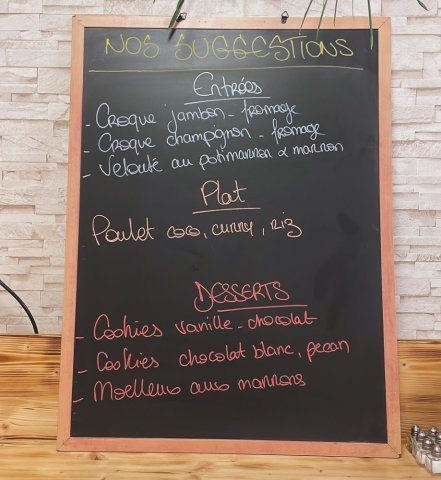 NOS SUGGESTIONS
Entrées
- Croque jambon - fromage
- Croque champignon - fromage
- Velouté au potimarron & marron
Plat
Poulet coco, curry, riz
DESSERTS
- Cookies vanille - chocolat
- Cookies chocolat blanc, pecan
- Moelleux aux marrons